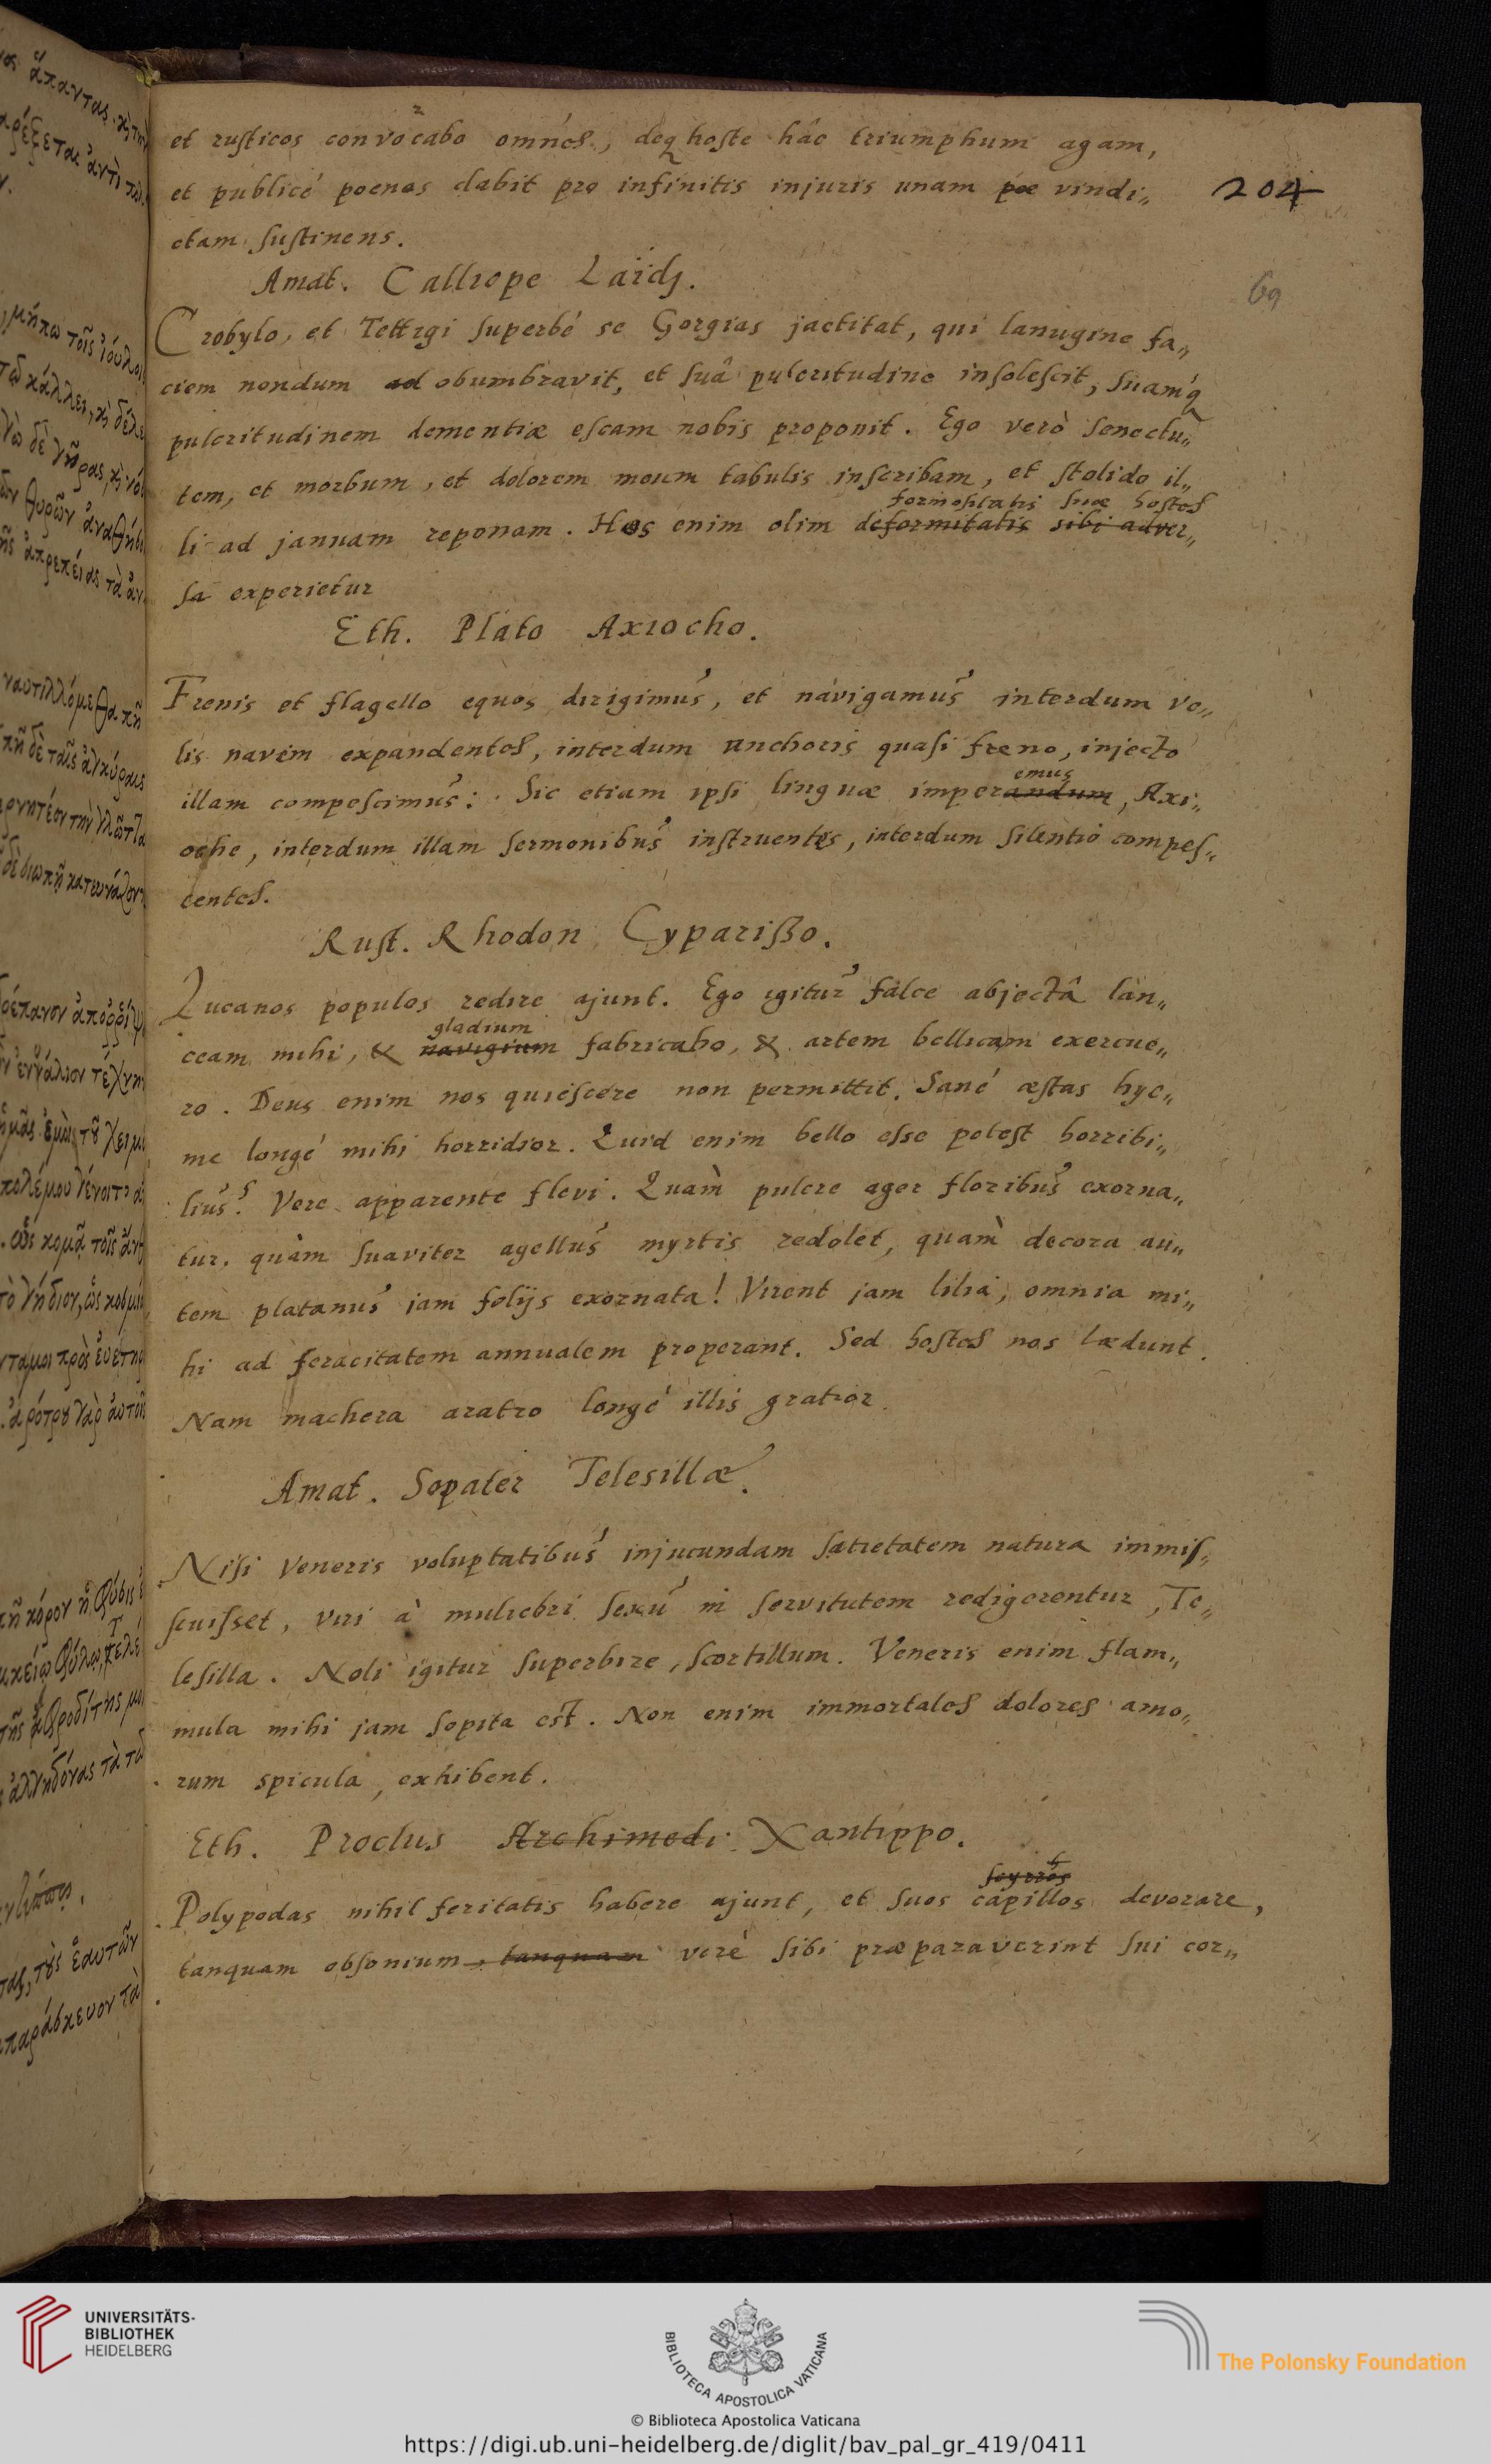 et rusticos convocabo omnes, deq hoste hâc triumphum agam,
et publicé poenas dabit pro infinitis injuris unam poe vindi„
204
ctam sustinens.
Amat. Calliope Laidj.
69
Crobylo, et Tettigi superbé se Gorgias jactitat, qui lanugine fa„
ciem nondum ad obumbravit, et suâ pulcritudine insolescit, suamq́
pulcritudinem dementiæ escam nobis proponit. Ego verò senectu„
tem, et morbum, et dolorem meum tabulis inscribam, et stolido il„
formositatis suæ hostes
li ad januam reponam. Hos enim olim deformitatis sibi adver„
sa experietur
Eth. Plato Axiocho.
Frenis et flagello equos dirigimus, et navigamus interdum ve„
lis navem expandentes, interdum anchoris quasi freno, injecto
emus
illam compescimus: Sic etiam ipsi linguæ imperandum, Axi„
oche, interdum illam sermonibus instruentes, interdum silentio compes„
centes.
Rust. Rhodon Cyparißo.
Lucanos populos redire ajunt. Ego igitur falce abjectâ lan„
gladium
ceam mihi, & navigium fabricabo, & artem bellicam exercue„
ro. Deus enim nos quiescere non permittit. Sané æstas hye„
me longé mihi horridior. Quid enim bello esse potest horribi„
lius? Vere apparente flevi. Quàm pulcre ager floribus exorna„
tur, quàm suaviter agellus myrtis redolet, quàm decora au„
tem platanus jam folijs exornata! Virent jam lilia, omnia mi„
hi ad feracitatem annualem properant. Sed hostes nos lædunt.
Nam machera aratro longé illis gratior
Amat. Sopater Telesillæ.
Nisi Veneris voluptatibus injucundam satietatem natura immis„
scuisset, viri à muliebri sexu in servitutem redigerentur, Te„
lesilla. Noli igitur superbire, scortillum. Veneris enim flam„
mula mihi jam sopita est. Non enim immortales dolores amo„
rum spicula, exhibent.
Eth. Proclus Archimedi Xantippo.
Polypodas nihil feritatis habere ajunt, et suos capillos devorare,
tanquam obsonium, tanquam veré sibi præparaverint sui cor„
UNIVERSITÄTS-
BIBLIOTHEK
HEIDELBERG
BIBLIOTECA APOSTOLICA VATICANA
The Polonsky Foundation
© Biblioteca Apostolica Vaticana
https://digi.ub.uni-heidelberg.de/diglit/bav_pal_gr_419/0411